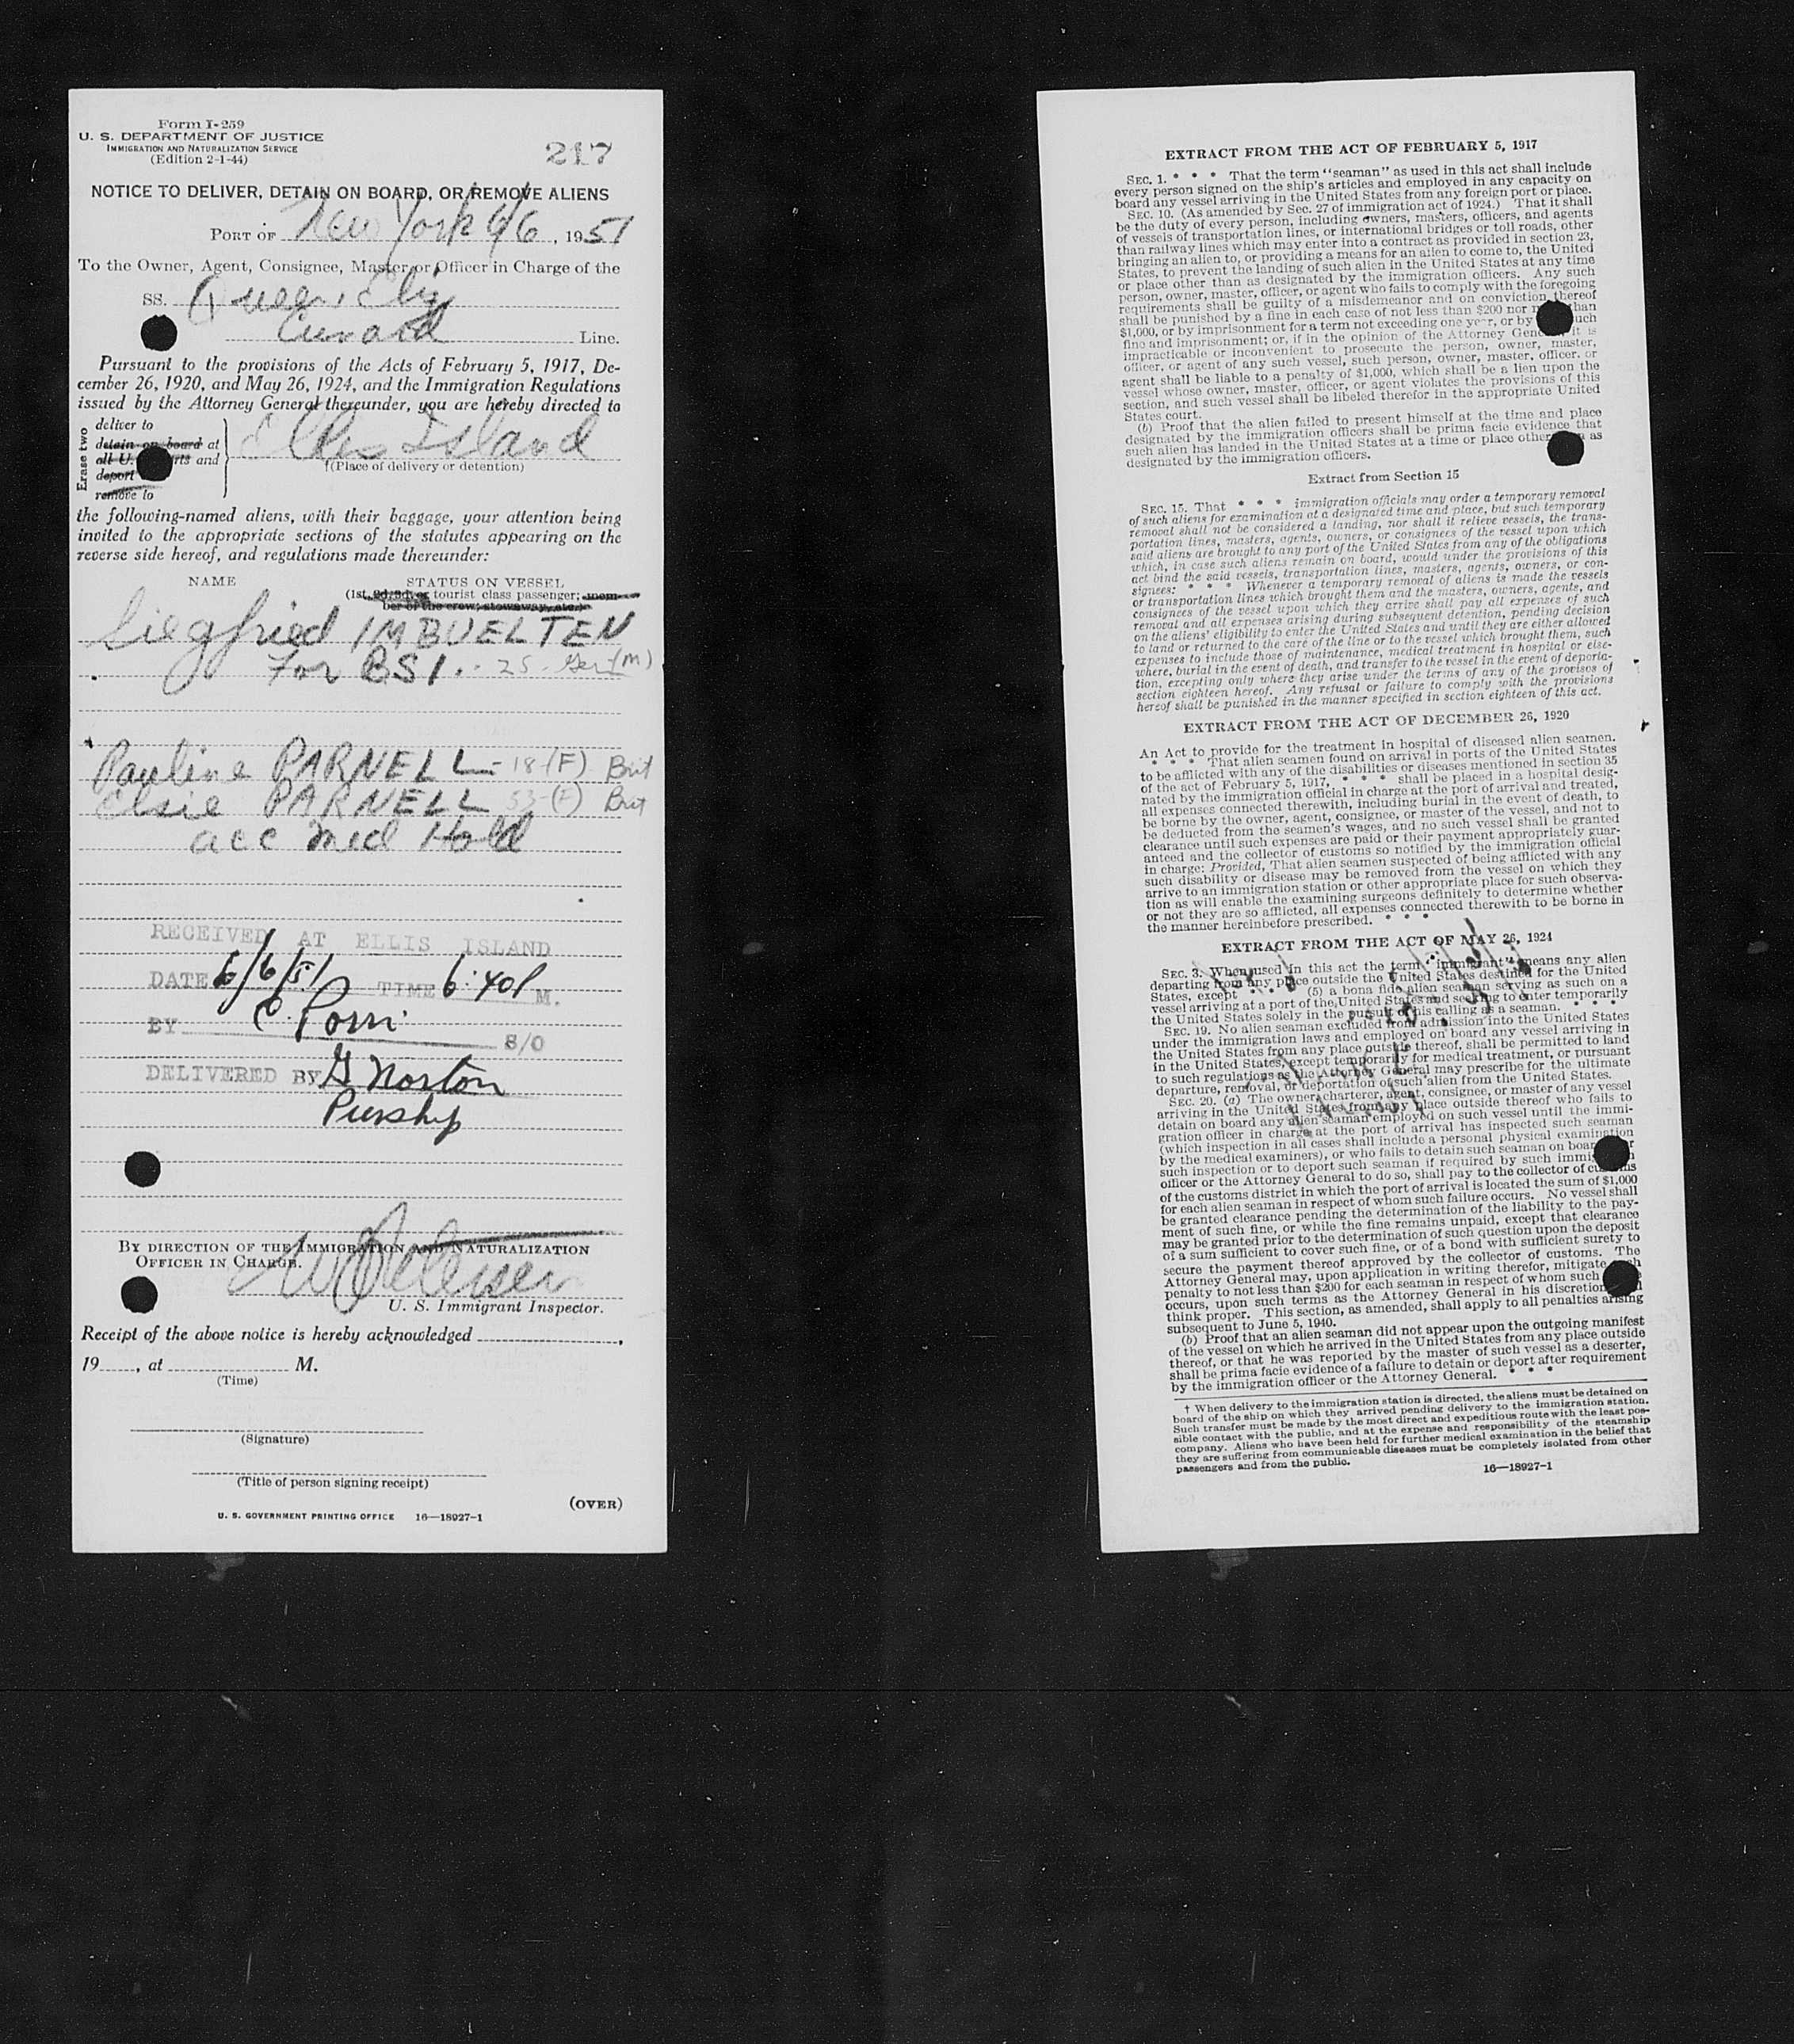 Form I-259
U. S. DEPARTMENT OF JUSTICE
IMMIGRATION AND NATURALIZATION SERVICE
(Edition 2-1-44)
217
NOTICE TO DELIVER, DETAIN ON BOARD, OR REMOVE ALIENS
PORT OF New York 6/6, 1951
To the Owner, Agent, Consignee, Master or Officer in Charge of the
SS. Queen Eliz
Cunard Line.
Pursuant to the provisions of the Acts of February 5, 1917, De-
cember 26, 1920, and May 26, 1924, and the Immigration Regulations
issued by the Attorney General thereunder, you are hereby directed to
Erase two
deliver to
detain on board at
all U. and
deport
remove to
Ellis Island
†(Place of delivery or detention)
the following-named aliens, with their baggage, your attention being
invited to the appropriate sections of the statutes appearing on the
reverse side hereof, and regulations made thereunder:
NAME STATUS ON VESSEL
(1st, 2d, 3d, or tourist class passenger; mem-
ber of the crew; stowaway, etc.)
Siegfried IMBUELTEN
For BSI. 25 - Ger (M)
Pauline PARNELL - 18 (F) Brit
Elsie PARNELL 53 - (F) Brit
acc Med Hold
RECEIVED AT ELLIS ISLAND
DATE 6/6/51 TIME 6:40 P M.
BY S/O
DELIVERED BY G Norton
BY DIRECTION OF THE IMMIGRATION AND NATURALIZATION
OFFICER IN CHARGE.
U. S. Immigrant Inspector.
Receipt of the above notice is hereby acknowledged ,
19 , at M.
(Time)
(Signature)
(Title of person signing receipt)
(OVER)
U. S. GOVERNMENT PRINTING OFFICE 16—18927-1
EXTRACT FROM THE ACT OF FEBRUARY 5, 1917
SEC. 1. * * * That the term "seaman" as used in this act shall include
every person signed on the ship's articles and employed in any capacity on
board any vessel arriving in the United States from any foreign port or place.
SEC. 10. (As amended by Sec. 27 of immigration act of 1924.) That it shall
be the duty of every person, including owners, masters, officers, and agents
of vessels of transportation lines, or international bridges or toll roads, other
than railway lines which may enter into a contract as provided in section 23,
bringing an alien to, or providing a means for an alien to come to, the United
States, to prevent the landing of such alien in the United States at any time
or place other than as designated by the immigration officers. Any such
person, owner, master, officer, or agent who fails to comply with the foregoing
requirements shall be guilty of a misdemeanor and on conviction thereof
shall be punished by a fine in each case of not less than $200 nor than
$1,000, or by imprisonment for a term not exceeding one year, or by such
fine and imprisonment; or, if in the opinion of the Attorney General it is
impracticable or inconvenient to prosecute the person, owner, master,
officer, or agent of any such vessel, such person, owner, master, officer, or
agent shall be liable to a penalty of $1,000, which shall be a lien upon the
vessel whose owner, master, officer, or agent violates the provisions of this
section, and such vessel shall be libeled therefor in the appropriate United
States court.
(b) Proof that the alien failed to present himself at the time and place
designated by the immigration officers shall be prima facie evidence that
such alien has landed in the United States at a time or place other as
designated by the immigration officers.
Extract from Section 15
SEC. 15. That * * * immigration officials may order a temporary removal
of such aliens for examination at a designated time and place, but such temporary
removal shall not be considered a landing, nor shall it relieve vessels, the trans-
portation lines, masters, agents, owners, or consignees of the vessel upon which
said aliens are brought to any port of the United States from any of the obligations
which, in case such aliens remain on board, would under the provisions of this
act bind the said vessels, transportation lines, masters, agents, owners, or con-
signees: * * * Whenever a temporary removal of aliens is made the vessels
or transportation lines which brought them and the masters, owners, agents, and
consignees of the vessel upon which they arrive shall pay all expenses of such
removal and all expenses arising during subsequent detention, pending decision
on the aliens' eligibility to enter the United States and until they are either allowed
to land or returned to the care of the line or to the vessel which brought them, such
expenses to include those of maintenance, medical treatment in hospital or else-
where, burial in the event of death, and transfer to the vessel in the event of deporta-
tion, excepting only where they arise under the terms of any of the provisos of
section eighteen hereof. Any refusal or failure to comply with the provisions
hereof shall be punished in the manner specified in section eighteen of this act.
EXTRACT FROM THE ACT OF DECEMBER 26, 1920
An Act to provide for the treatment in hospital of diseased alien seamen.
* * * That alien seamen found on arrival in ports of the United States
to be afflicted with any of the disabilities or diseases mentioned in section 35
of the act of February 5, 1917, * * * shall be placed in a hospital desig-
nated by the immigration official in charge at the port of arrival and treated,
all expenses connected therewith, including burial in the event of death, to
be borne by the owner, agent, consignee, or master of the vessel, and not to
be deducted from the seamen's wages, and no such vessel shall be granted
clearance until such expenses are paid or their payment appropriately guar-
anteed and the collector of customs so notified by the immigration official
in charge: Provided, That alien seamen suspected of being afflicted with any
such disability or disease may be removed from the vessel on which they
arrive to an immigration station or other appropriate place for such observa-
tion as will enable the examining surgeons definitely to determine whether
or not they are so afflicted, all expenses connected therewith to be borne in
the manner hereinbefore prescribed. * * *
EXTRACT FROM THE ACT OF MAY 26, 1924
SEC. 3. When used in this act the term "immigrant" means any alien
departing from any place outside the United States destined for the United
States, except * * * (5) a bona fide alien seaman serving as such on a
vessel arriving at a port of the United States and seeking to enter temporarily
the United States solely in the pursuit of his calling as a seaman. * * *
SEC. 19. No alien seaman excluded from admission into the United States
under the immigration laws and employed on board any vessel arriving in
the United States from any place outside thereof, shall be permitted to land
in the United States, except temporarily for medical treatment, or pursuant
to such regulations as the Attorney General may prescribe for the ultimate
departure, removal, or deportation of such alien from the United States.
SEC. 20. (a) The owner, charterer, agent, consignee, or master of any vessel
arriving in the United States from any place outside thereof who fails to
detain on board any alien seaman employed on such vessel until the immi-
gration officer in charge at the port of arrival has inspected such seaman
(which inspection in all cases shall include a personal physical examination
by the medical examiners), or who fails to detain such seaman on board
such inspection or to deport such seaman if required by such
officer or the Attorney General to do so, shall pay to the collector of customs
of the customs district in which the port of arrival is located the sum of $1,000
for each alien seaman in respect of whom such failure occurs. No vessel shall
be granted clearance pending the determination of the liability to the pay-
ment of such fine, or while the fine remains unpaid, except that clearance
may be granted prior to the determination of such question upon the deposit
of a sum sufficient to cover such fine, or of a bond with sufficient surety to
secure the payment thereof approved by the collector of customs. The
Attorney General may, upon application in writing therefor, mitigate
penalty to not less than $200 for each seaman in respect of whom such
occurs, upon such terms as the Attorney General in his discretion
think proper. This section, as amended, shall apply to all penalties arising
subsequent to June 5, 1940.
(b) Proof that an alien seaman did not appear upon the outgoing manifest
of the vessel on which he arrived in the United States from any place outside
thereof, or that he was reported by the master of such vessel as a deserter,
shall be prima facie evidence of a failure to detain or deport after requirement
by the immigration officer or the Attorney General. * * *
† When delivery to the immigration station is directed, the aliens must be detained on
board of the ship on which they arrived pending delivery to the immigration station.
Such transfer must be made by the most direct and expeditious route with the least pos-
sible contact with the public, and at the expense and responsibility of the steamship
company. Aliens who have been held for further medical examination in the belief that
they are suffering from communicable diseases must be completely isolated from other
passengers and from the public.
16—18927-1